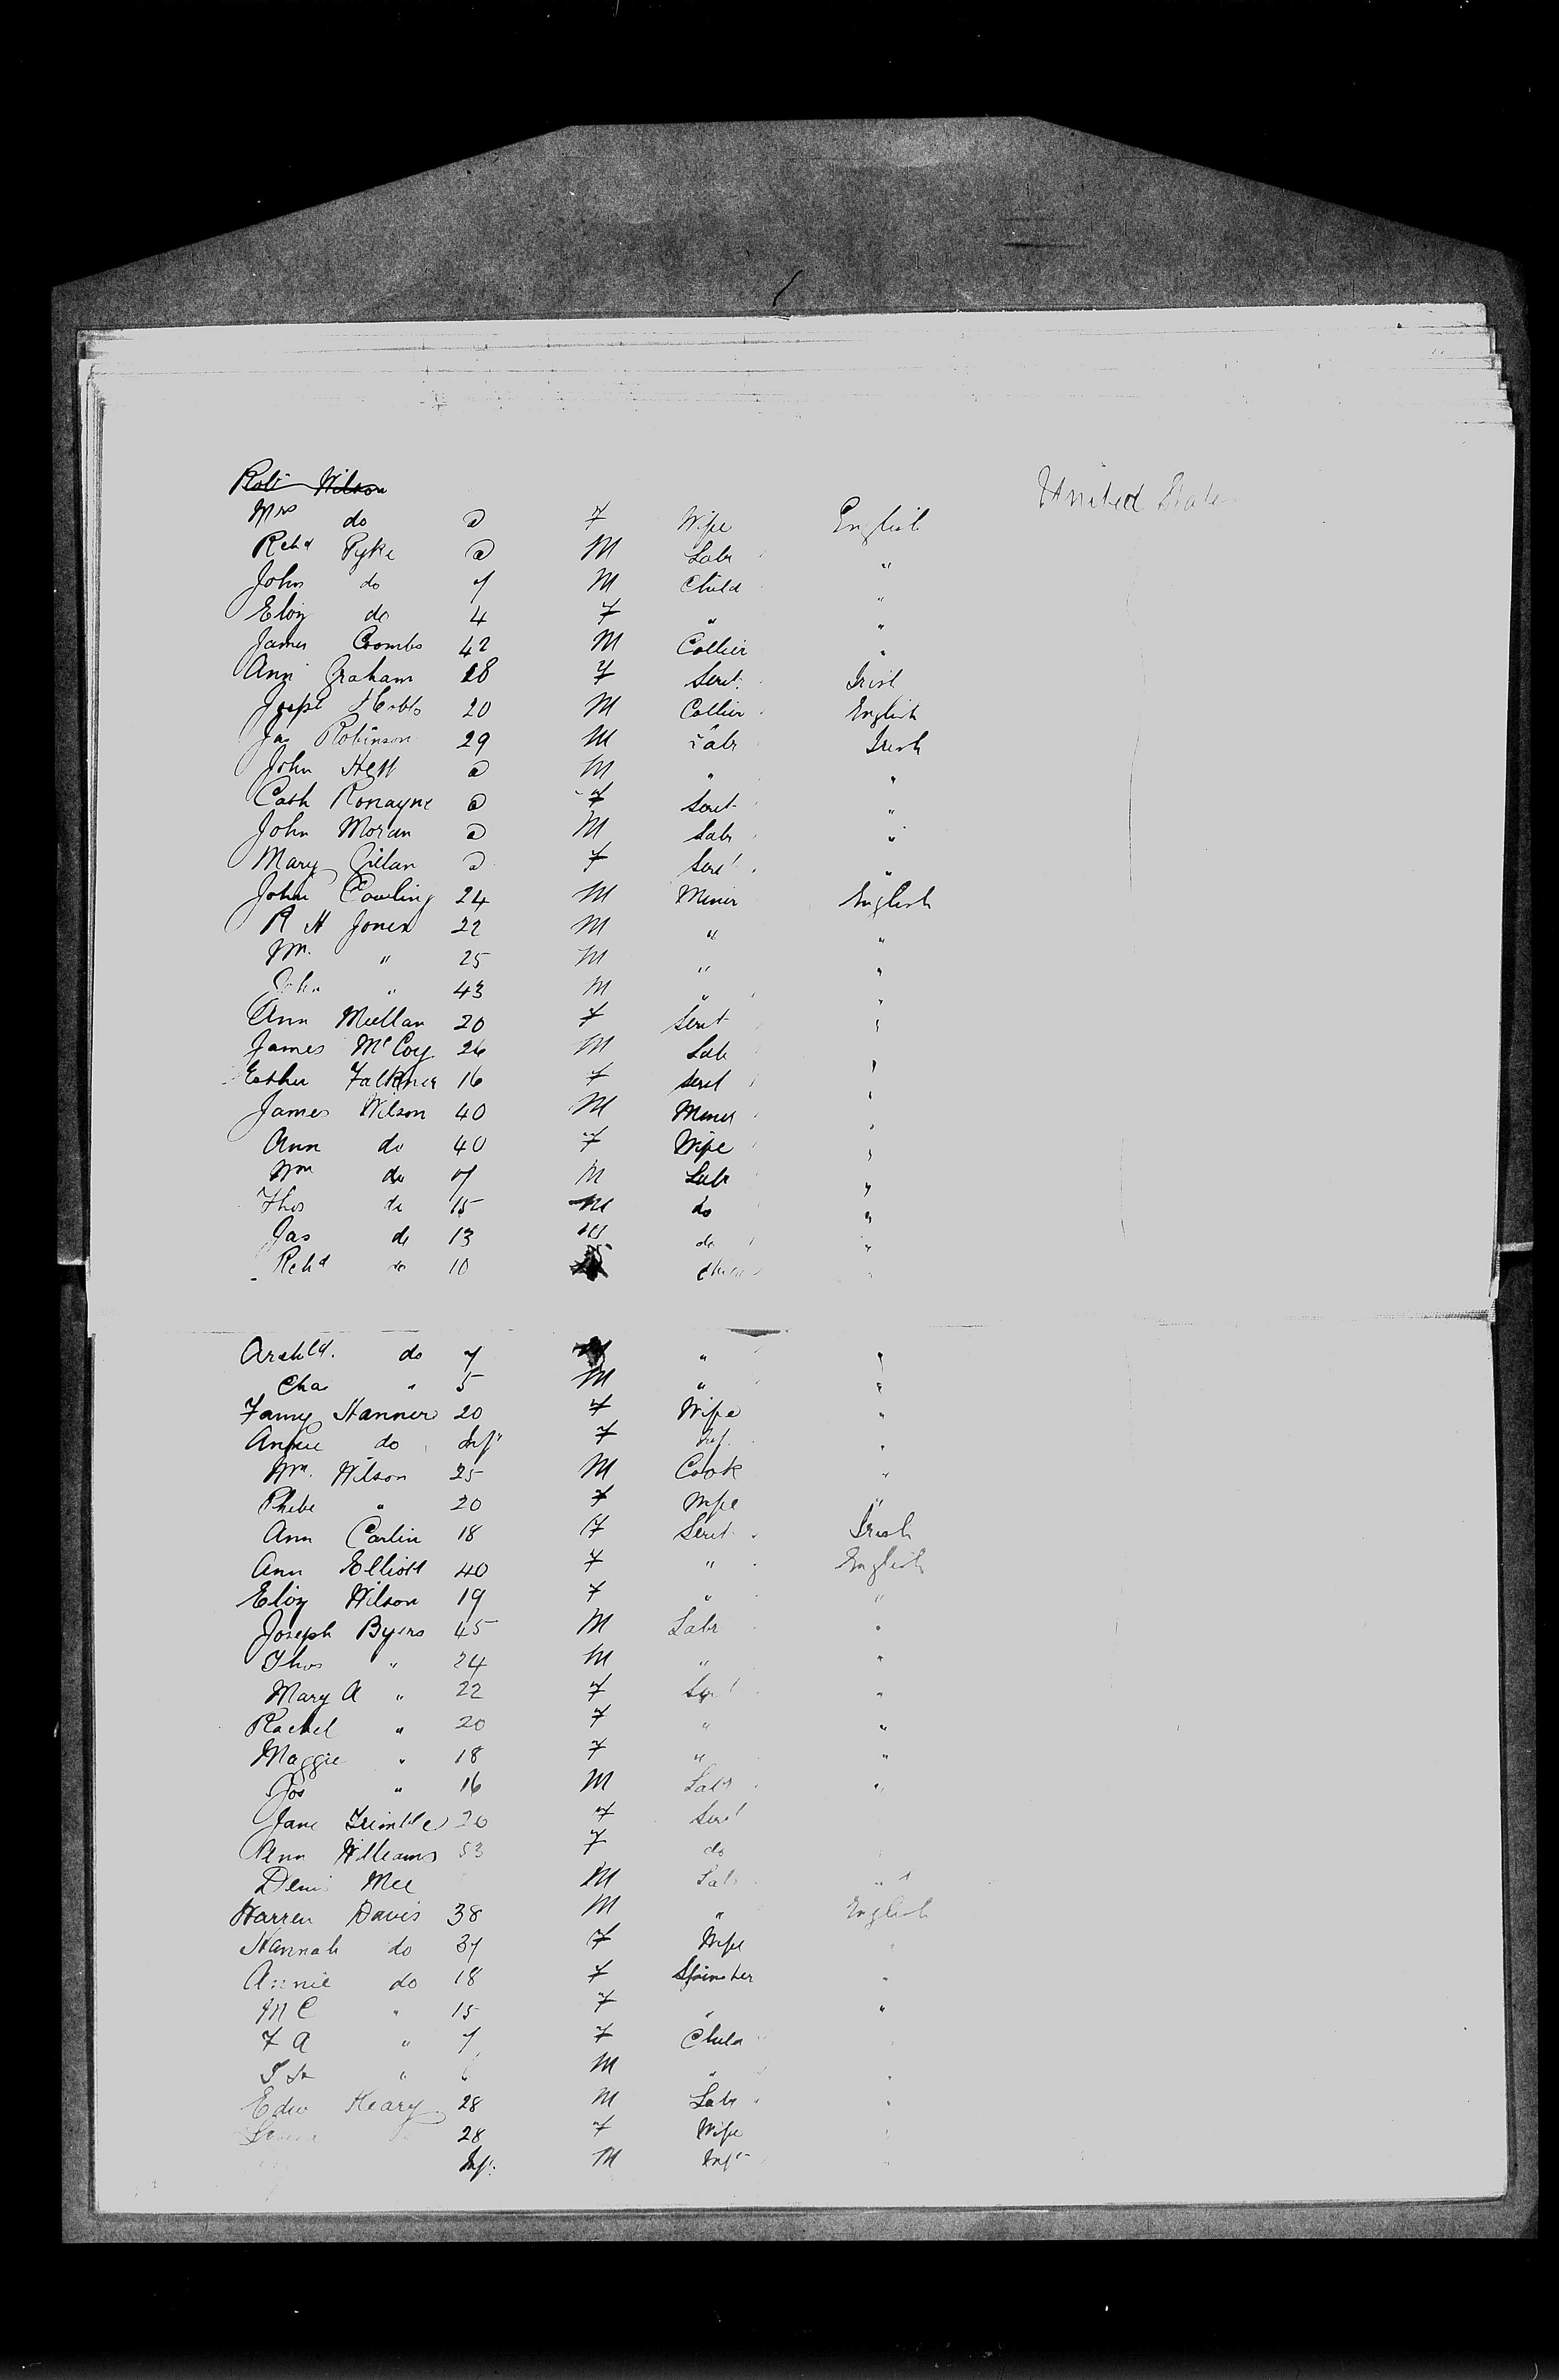 Robt Wilson
Mrs do a F Wife English United States
Richd Pyke a M Labr "
John do 7 M Child "
Eliz do 4 F " "
James Coombs 42 M Collier "
Ann Graham 18 F Servt Irish
Joseph Hobbs 20 M Collier English
Jas Robinson 29 M Labr Irish
John a M " "
Cath Ronayne a F Servt "
John Moran a M Labr "
Mary a F Servt "
John Cowling 24 M Miner English
R H Jones 22 M " "
Wm. " 25 M " "
John " 43 M " "
Ann Mullan 20 F Servt "
James McCoy 26 M Lab "
Esther Falkner 16 F Servt "
James Wilson 40 M Miner "
Ann do 40 F Wife "
Wm do 17 M Labr "
Thos do 15 M do "
Jas do 13 M do "
Richd do 10 Child "
Archld. do 7 M " "
Chas " 5 M " "
Fanny Hanner 20 F Wife "
Annie do Inft F Inf. "
Wm. Wilson 25 M Cook "
Phebe " 20 F Wife "
Ann Carlin 18 F Servt Irish
Ann Elliott 40 F " English
Eliz Wilson 19 F " "
Joseph Byers 45 M Labr "
Thos " 24 M " "
Mary A " 22 F Servt "
Rachel " 20 F " "
Maggie " 18 F " "
Jos " 16 M Labr "
Jane Trimble 20 F Servt
Ann Williams 53 F do
Denis Mee M Labr "
Warren Davis 38 M " English
Hannah do 37 F Wife "
Annie do 18 F Spinster "
M C " 15 F " "
F A " 7 F Child "
" M " "
Edw Heary 28 M Labr "
28 F Wife "
Inft. M Inft "